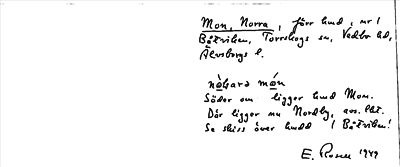 Mon, Norra, förr hmd, nr 1
Båtviken, Torrskogs sn, Vedbo hd,
Älvsborgs l.
nǫ̀hara mǫ́n
Söder om ligger hmd Mon.
Där ligger nu Nordby, avs. lht.
Se skiss över hmdd i Båtviken!
E. Rosell 1949